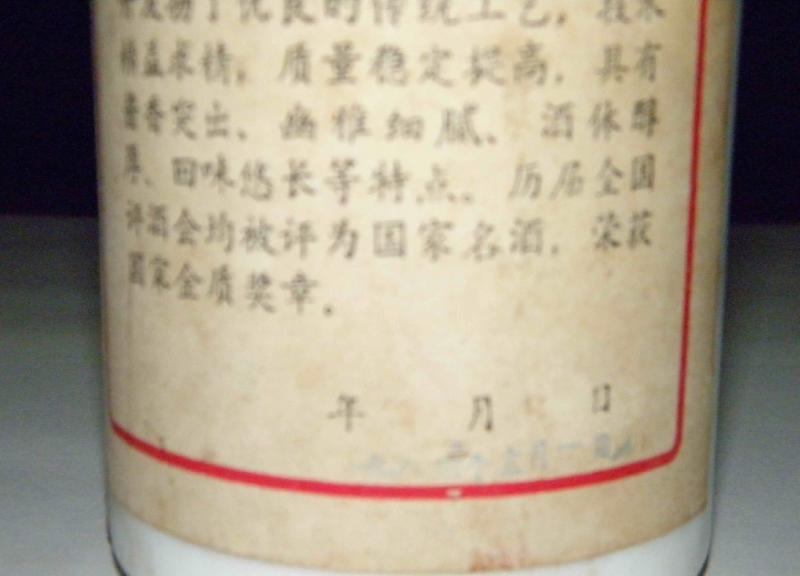 发扬了优良的传统工艺，技术
精益求精，质量稳定提高，具有
酱香突出、幽雅细腻、酒体醇
厚、回味悠长等特点。历届全国
评酒会均被评为国家名酒，荣获
国家金质奖章。
年 月 日